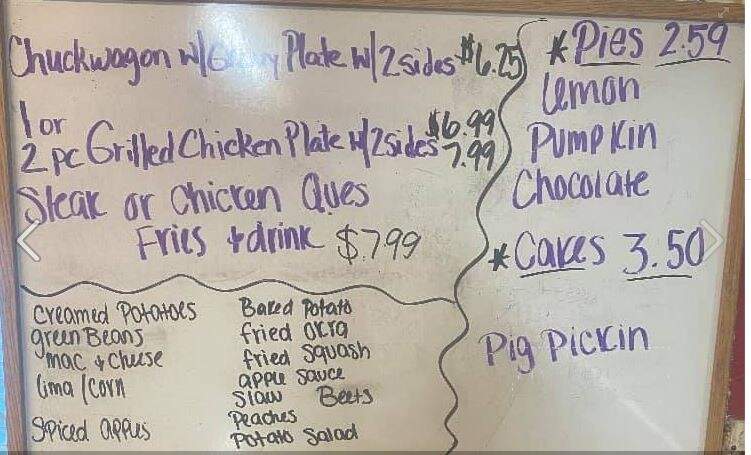 Chuckwagon w/Gravy Plate w/2 sides $6.25
1 or $6.99
2 pc Grilled Chicken Plate w/2 sides 7.99
Steak or Chicken Ques
Fries & drink $7.99
*Pies 2.59
Lemon
Pumpkin
Chocolate
*Cakes 3.50
Pig Pickin
Creamed Potatoes
green Beans
mac & cheese
lima / corn
Spiced apples
Baked Potato
fried okra
fried squash
apple sauce
Slaw Beets
Peaches
Potato Salad